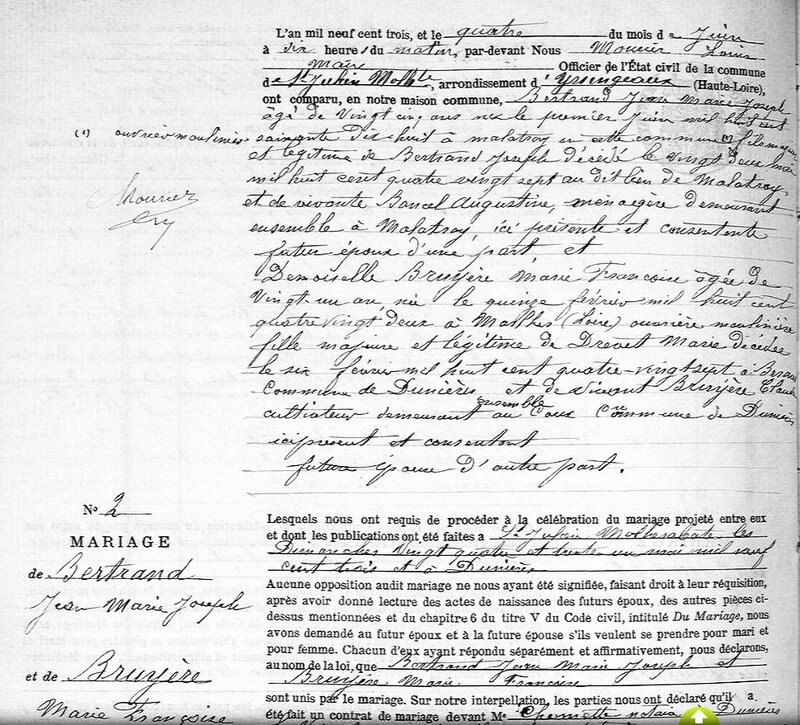 L'an mil neuf cent trois, et le quatre du mois de Juin
à dix heures du matin, par-devant Nous Mourier Louis
Maire Officier de l'État civil de la commune
de St Julien Molh-te, arrondissement d'Yssingeaux (Haute-Loire),
ont comparu, en notre maison commune, Bertrand Jean Marie Joseph
âgé de vingt cinq ans né le premier Juin mil huit cent
(1) ouvrier moulinier soixante dix huit à malatray en cette commune (1) fils majeur
et légitime de Bertrand Joseph décédé le vingt deux mai
mil huit cent quatre vingt sept au dit lieu de Malatray
Mourier et de vivante Bancel Augustine, ménagère demeurant
ensemble à Malatray, ici présente et consentente
futur époux d'une part et
Demoiselle Bruyère Marie Francoise âgée de
Vingt un an née le quinze février mil huit cent
quatre vingt deux à Marlhes (Loire) ouvrière moulinière
fille majeure et légitime de Drevet Marie décédée
le six février mil huit cent quatre-vingt sept à
Commune de Dunières et de vivant Bruyère Claude
cultivateur demeurant ensemble au Commune de Dunières
ici présent et consentant
future épouse d'autre part.
No 2
MARIAGE
de Bertrand
Jean Marie Joseph
et de Bruyère
Marie Françoise
Lesquels nous ont requis de procéder à la célébration du mariage projeté entre eux
et dont les publications ont été faites à St Julien Molhesabate les
Dimanches vingt quatre et trente un mai mil neuf
cent trois et à Dunières
Aucune opposition audit mariage ne nous ayant été signifiée, faisant droit à leur réquisition,
après avoir donné lecture des actes de naissance des futurs époux, des autres pièces ci-
dessus mentionnées et du chapitre 6 du titre V du Code civil, intitulé Du Mariage, nous
avons demandé au futur époux et à la future épouse s'ils veulent se prendre pour mari et
pour femme. Chacun d'eux ayant répondu séparément et affirmativement, nous déclarons,
au nom de la loi, que Bertrand Jean Marie Joseph et
Bruyère Marie Francoise
sont unis par le mariage. Sur notre interpellation, les parties nous ont déclaré qu'il a
été fait un contrat de mariage devant Me notaire Dunières